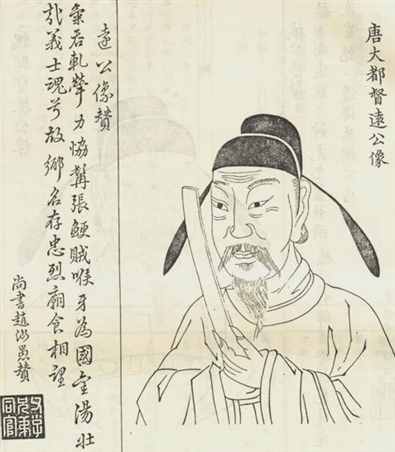 唐大都督遠公像
遠公像贊
軋犖力協張鯁賊喉牙為國金湯壯
哉義士魂兮故鄉名存忠烈廟食相望
尚書趙汝愚贊